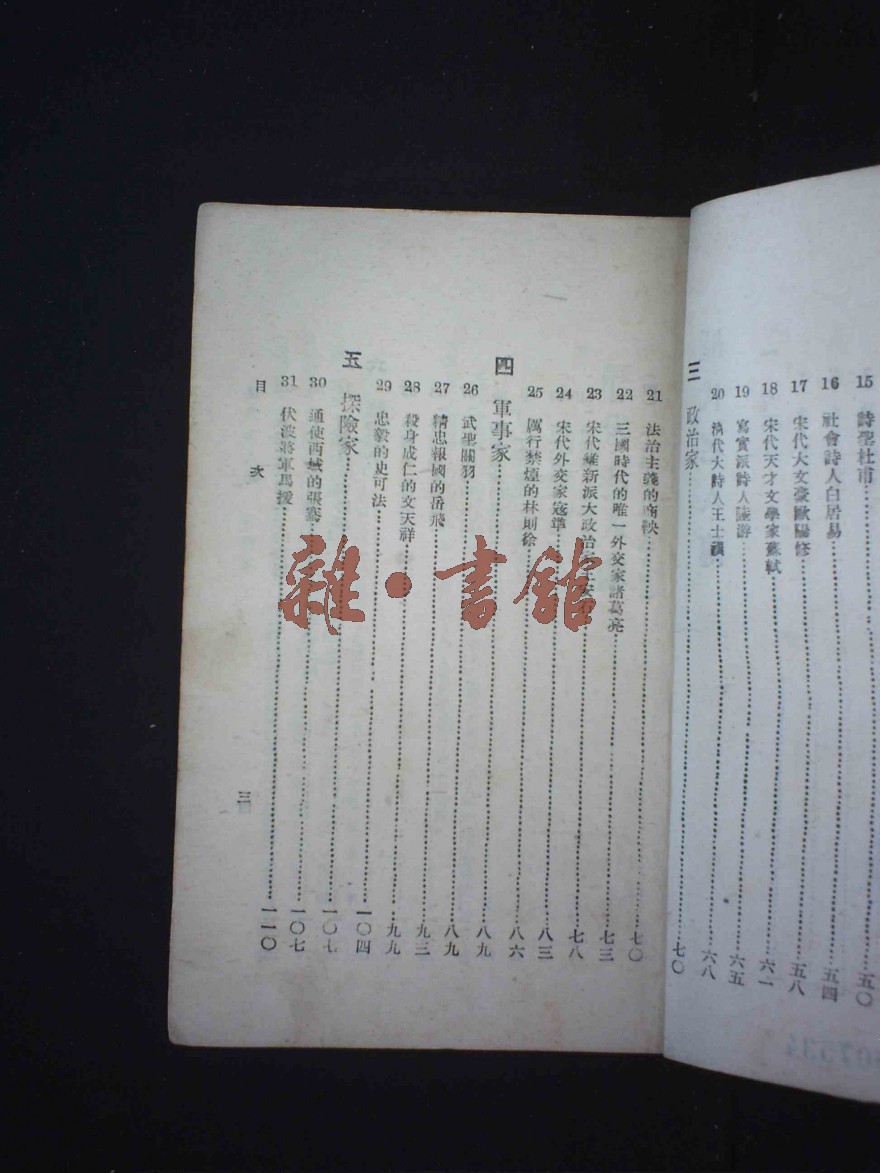 15 詩聖杜甫……五〇
16 社會詩人白居易……五四
17 宋代大文豪歐陽修……五八
18 宋代天才文學家蘇軾……六一
19 寫實派詩人陸游……六五
20 清代大詩人王士禎……六八
三 政治家……七〇
21 法治主義的商鞅……七〇
22 三國時代的唯一外交家諸葛亮……七三
23 宋代維新派大政治家王安石……七八
24 宋代外交家寇準……八三
25 厲行禁煙的林則徐……八六
四 軍事家……八九
26 武聖關羽……八九
27 精忠報國的岳飛……九三
28 殺身成仁的文天祥……九九
29 忠毅的史可法……一〇四
五 探險家……一〇七
30 通使西域的張騫……一〇七
31 伏波將軍馬援……一一〇
目次 三
雜·書館